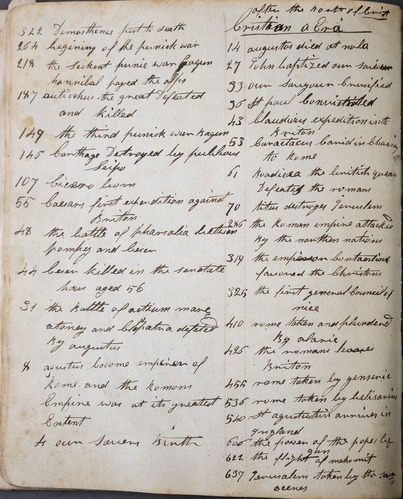 322 Demosthenes put to death
264 begining of the punick war
218 the second punic war began
hannibal passed the alps
187 antiochus the great Defeated
and killed
149 the third punick war began
145 Carthage Destroyed by publious
Scipo
107 Cicero born
55 Caesars first expendition against
Briton
48 the battle of pharsalia between
pompey and Cesar
44 Cesar killed in the senate
house aged 56
31 the battle of actium marc
antoney and Cleopatra defeted
by augustus
8 agustus become emperor of
Rome and the Romons
Empire was at its greatest
Extent
4 our Saviers birth
after the birth of Crist
Cristian a Era
14 augustus died at nola
27 John baptized our saviour
33 our saviour Crucified
35 St paul Converted
43 Claudius expedition into
Briton
53 Caractacus Carried in Chains
to Rome
61 Boadicea the british queen
Defeated the romans
70 titus destroys Jerusalem
the Roman empire attacked
by the northern nations
319 the emperor Contantine
favoured the Christians
325 the first general Council of
nice
410 rome taken and plundered
by alaric
426 the romans leaves
Briton
455 rome taken by genseric
536 rome taken by belisarius
St agustine arrives in
England
606 the power of the popes began
622 the flight of mahomit
637 Jerusalem taken by the sar
acenes